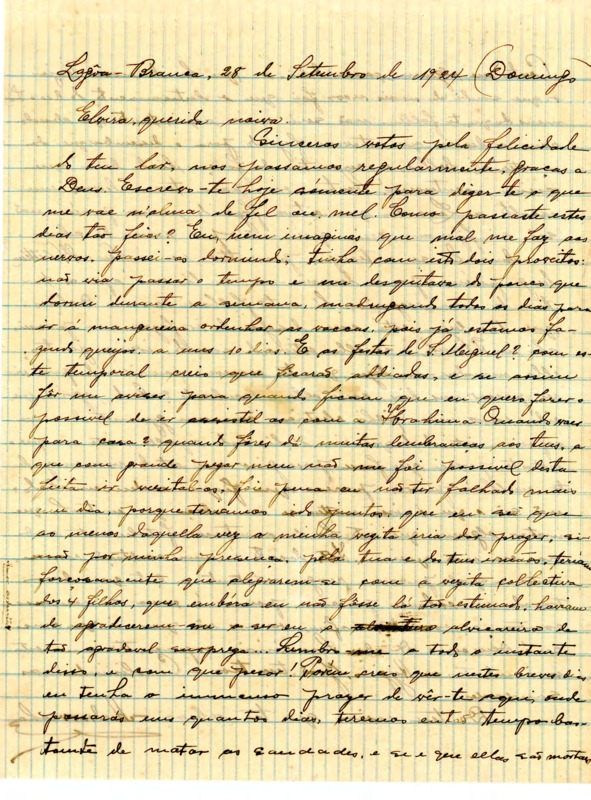 Lagôa-Branca, 28 de Setembro de 1924 (Domingo)
Elvira, querida noiva.
Sinceros votos pela felicidade
do teu lar, nos passamos regularmente, graças a
Deus. Escrevo-te hoje sómente para dizer-te o que
me vae n'alma, de fel ou, mel. Como passaste estes
dias tão feios? Eu, nem imaginas que mal me faz aos
nervos. Passei-os dormindo; tinha com isto dois proveitos:
não via passar o tempo e me desquitava do pouco que
dormi durante a semana, madrugando todos os dias para
ir á mangueira ordenhar as vaccas, pois já estamos fa-
zendo queijos, a uns 10 dias. E as festas de S. Miguel? com es-
te temporal creio que ficarão addiadas, e se assim
fôr me avises para quando ficam que eu quero fazer o
possivel de ir assistil-as com a Ibrahima. Quando vaes
para casa? quando fôres dá muitas lembranças aos teus, e
que com grande pezar meu não me foi possivel desta
feita ir vezital-os, foi pena eu não ter falhado mais
um dia, porque teriamos ido juntos, que eu sei que
ao menos daquella vez a minha vezita iria dar prazer, si
não por minha presença, pela tua e dos teus irmãos, teriam
forçosamente que alegrarem-se com a vezita collectiva
dos 4 filhos, que embóra eu não fôsse lá tão estimado, haviam
de agradecerem-me a ser eu o alviçareiro de
tão agradavel surpreza... Lembro-me a todo o instante
disso e com que pesar! Porem creio que nestes breves dias
eu tenha o immenso prazer de vêr-te aqui, onde
passarás uns quantos dias, teremos entã tempo bas-
tante de matar as saudades, e se é que ellas são mortaes